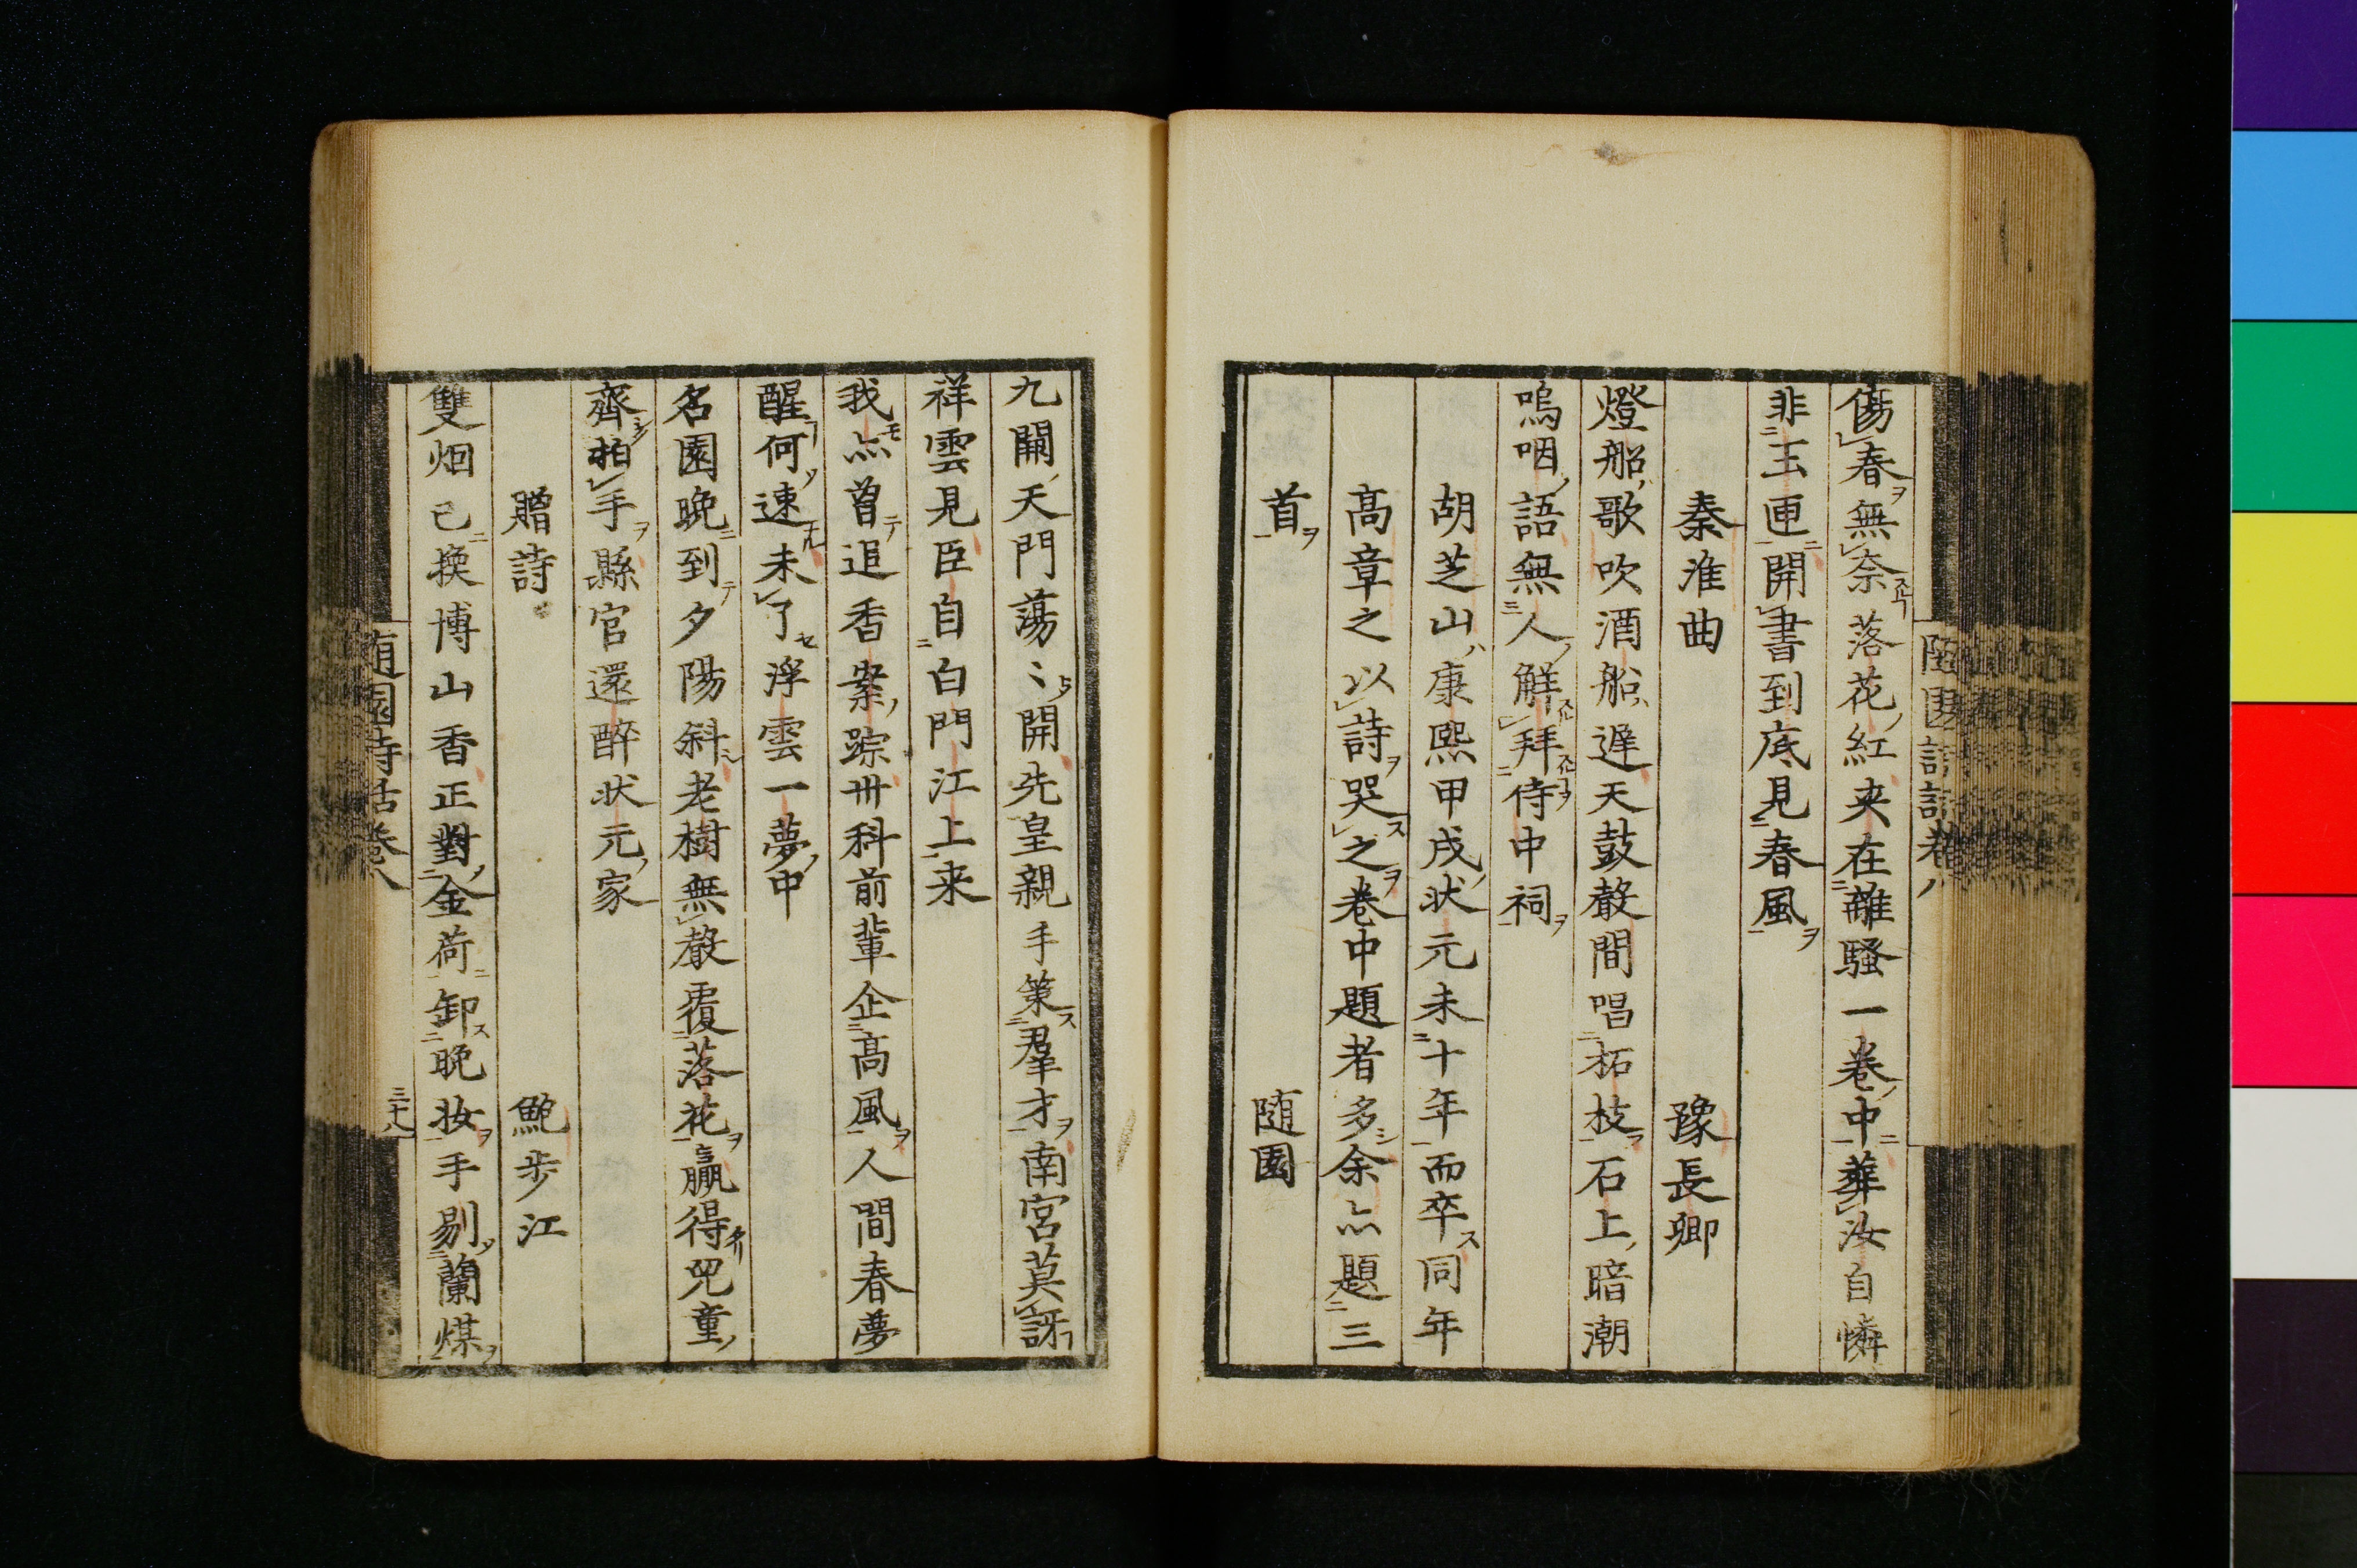 傷春無奈落花紅夾在離騷一卷中葬汝自憐
非玉匣開書到底見春風
秦淮曲 豫長卿
燈船歌吹酒船遲天鼓聲間唱柘枝石上暗潮
嗚咽語無人解拜侍中祠
胡芝山康熙甲戌狀元未十年而卒同年
高章之以詩哭之卷中題者多余亦題三
首 随園
随園詩話卷八
九關天門蕩〻開先皇親手策羣才南宮莫訝
祥雲見臣自白門江上来
我亦曾追香案踪卅科前輩企高風人間春夢
醒何速未了浮雲一夢中
名園晚到夕陽斜老樹無聲覆落花贏得兒童
齊拍手縣官還醉狀元家
贈詩 鮑步江
雙烟已換博山香正對金荷卸晚妝手剔蘭煤
随園詩話卷八
三十八